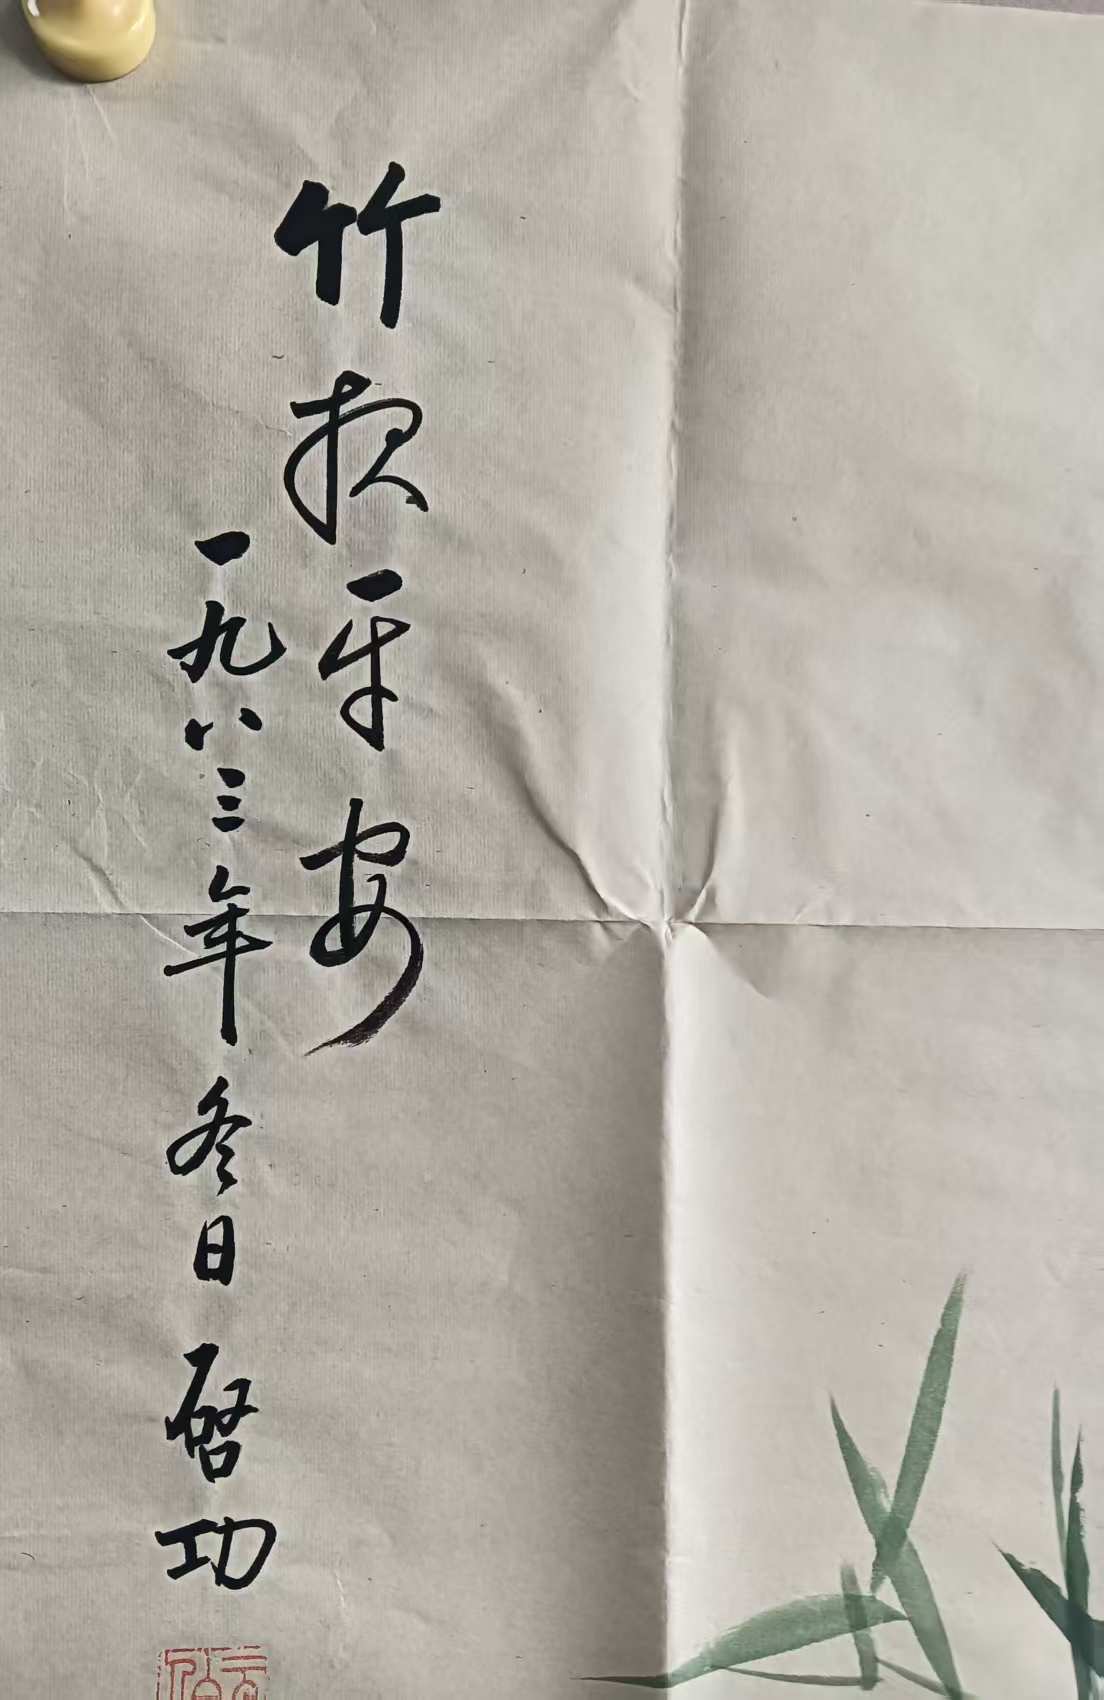 竹报平安
一九八三年冬日 启功